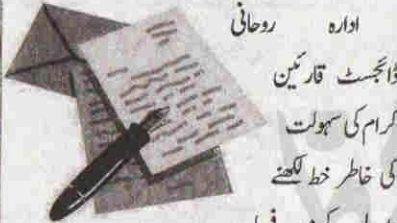 ادارہ روحانی
ڈائجسٹ قارئین
کرام کی سہولت
کی خاطر خط لکھنے